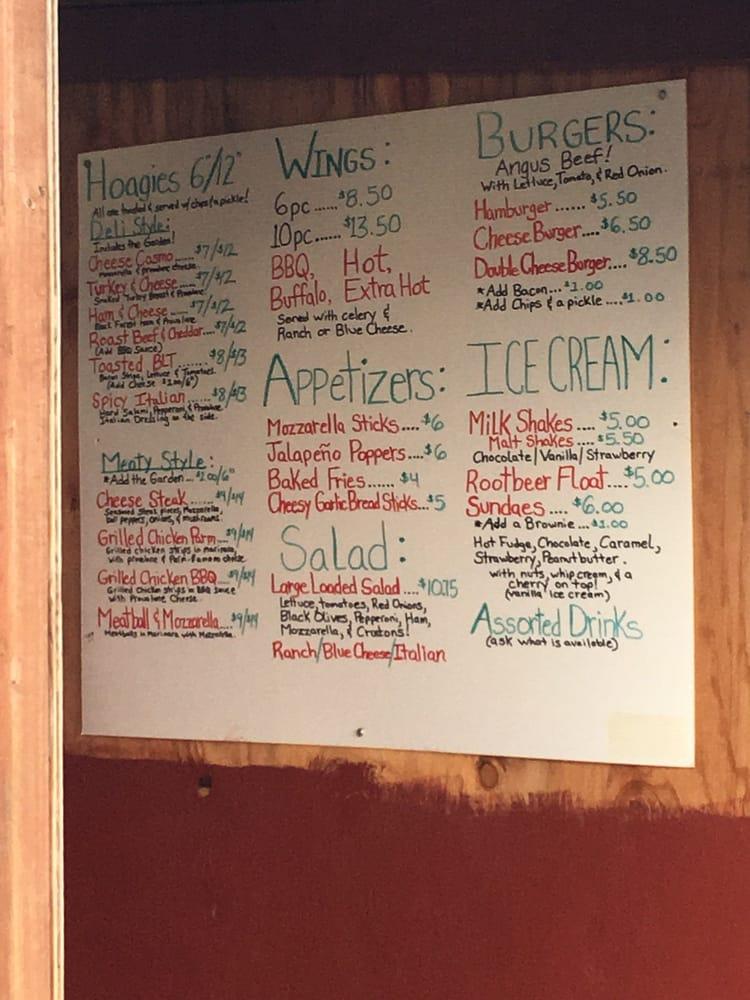 Hoagies 6"/12"
All are toasted & served w/ chips & a pickle!
Deli Style:
Includes the Garden!
Cheese Cosmo..... $7/$12
Mozzarella & provolone cheese.
Turkey & Cheese..... $7/$12
Smoked Turkey Breast & Provolone.
Ham & Cheese..... $7/$12
Black Forest Ham & Provolone.
Roast Beef & Cheddar..... $7/$12
(Add BBQ Sauce)
Toasted BLT..... $8/$13
Bacon Strips, Lettuce & Tomatoes.
(Add Cheese $1.00/6")
Spicy Italian..... $8/$13
Hard Salami, Pepperoni, & Provolone.
Italian Dressing on the side.
Meaty Style:
*Add the Garden... $1.00/6"
Cheese Steak..... $9/$14
Seasoned steak pieces, Mozzarella,
bell peppers, onions, & mushrooms.
Grilled Chicken Parm... $9/$14
Grilled chicken strips in marinara,
with provolone & Parm. cheese
Grilled Chicken BBQ... $9/$14
Grilled Chicken strips in BBQ sauce
with Provolone Cheese.
Meatball & Mozzarella.... $9/$14
Meatballs in Marinara with Mozzarella.
WINGS:
6pc...... $8.50
10pc...... $13.50
BBQ, Hot,
Buffalo, Extra Hot
Served with celery &
Ranch or Blue Cheese.
Appetizers:
Mozzarella Sticks.... $6
Jalapeño Poppers.... $6
Baked Fries...... $4
Cheesy Garlic Bread Sticks... $5
Salad:
Large Loaded Salad.... $10.75
Lettuce, tomatoes, Red Onions,
Black Olives, Pepperoni, Ham,
Mozzarella, & Croutons!
Ranch/Blue Cheese/Italian
BURGERS:
Angus Beef!
With Lettuce, Tomato, & Red Onion.
Hamburger...... $5.50
Cheese Burger.... $6.50
Double Cheese Burger.... $8.50
*Add Bacon... $1.00
*Add Chips & a pickle.... $1.00
ICE CREAM:
Milk Shakes.... $5.00
Malt Shakes.... $5.50
Chocolate/Vanilla/Strawberry
Rootbeer Float.... $5.00
Sundaes.... $6.00
*Add a Brownie... $1.00
Hot Fudge, Chocolate, Caramel,
Strawberry, Peanutbutter.
with nuts, whip cream, & a
cherry on top!
(Vanilla Ice cream)
Assorted Drinks
(ask what is available)